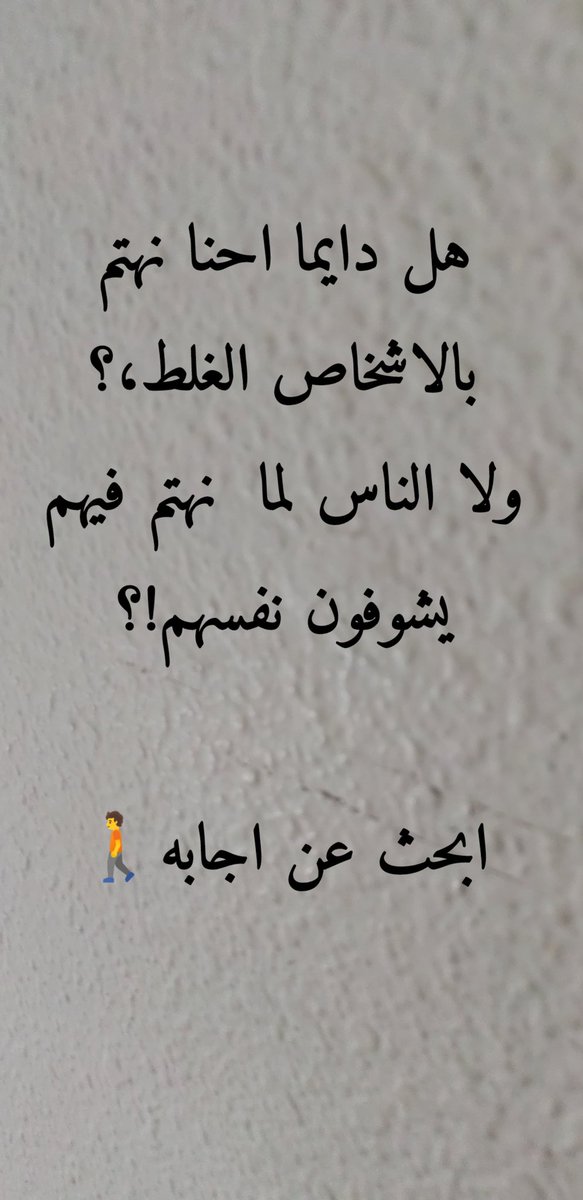 هل دايما احنا نهتم
بالاشخاص الغلط،؟
ولا الناس لما نهتم فيهم
يشوفون نفسهم!؟
ابحث عن اجابه 🚶